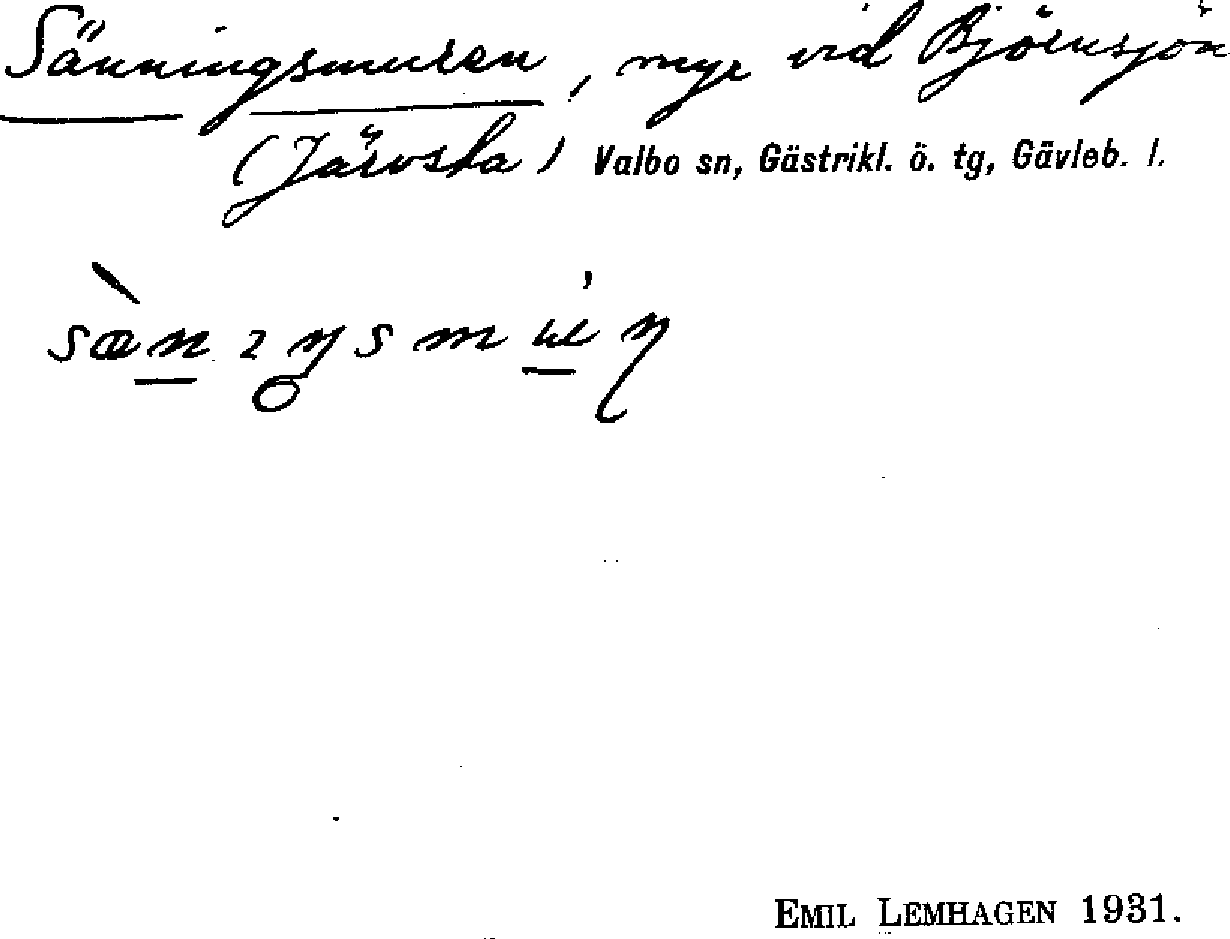 Sänningsmuren, myr vid Björnsjön
(Järvsta) Valbo sn, Gästrikl. ö. tg, Gävleb. l.
EMIL LEMHAGEN 1931.